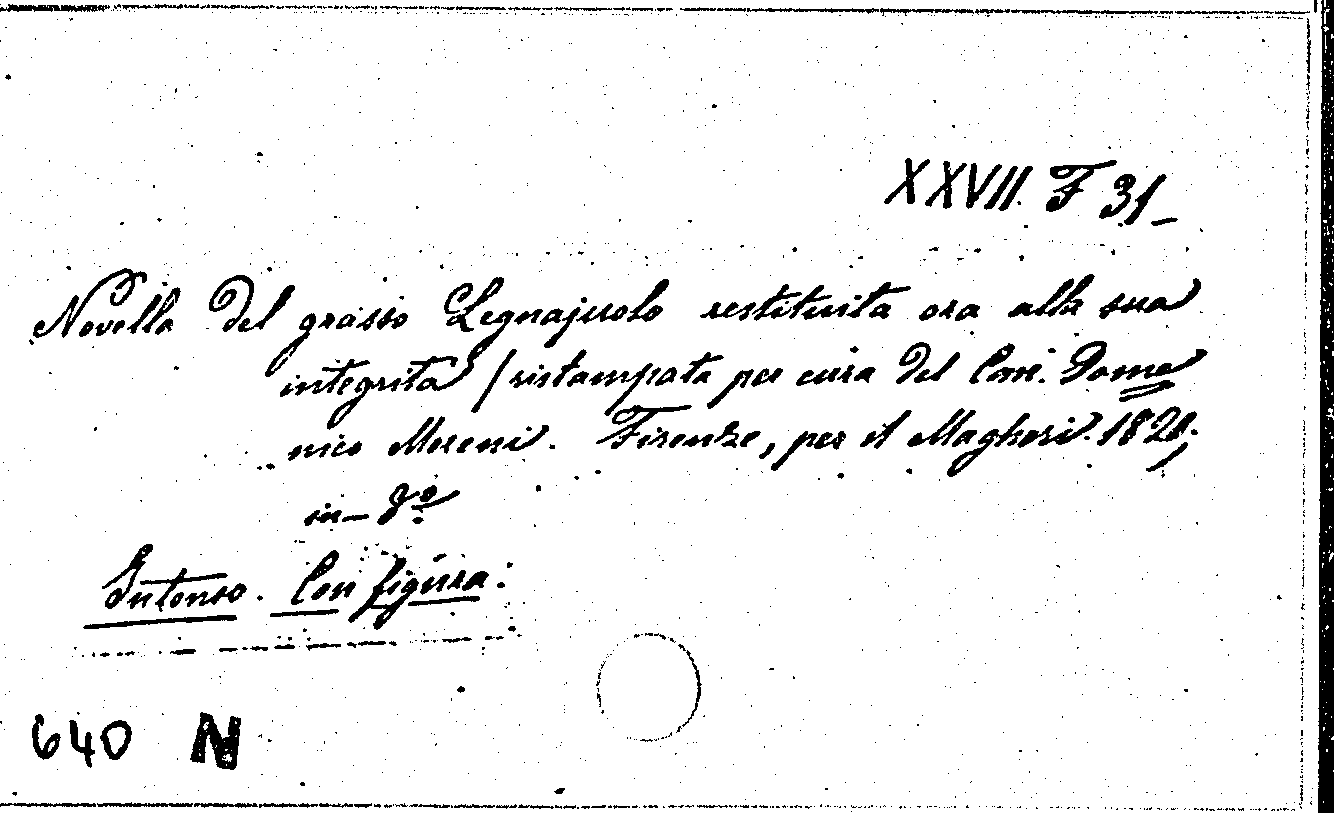 XXVII. F 31_
Novella del grasso Legnajuolo restituita ora alla sua
integrità (ristampata per cura del Can. Dome
nico Moreni). Firenze, per il Magheri. 1820;
in_8º
Intonso. Con figura.
640 N